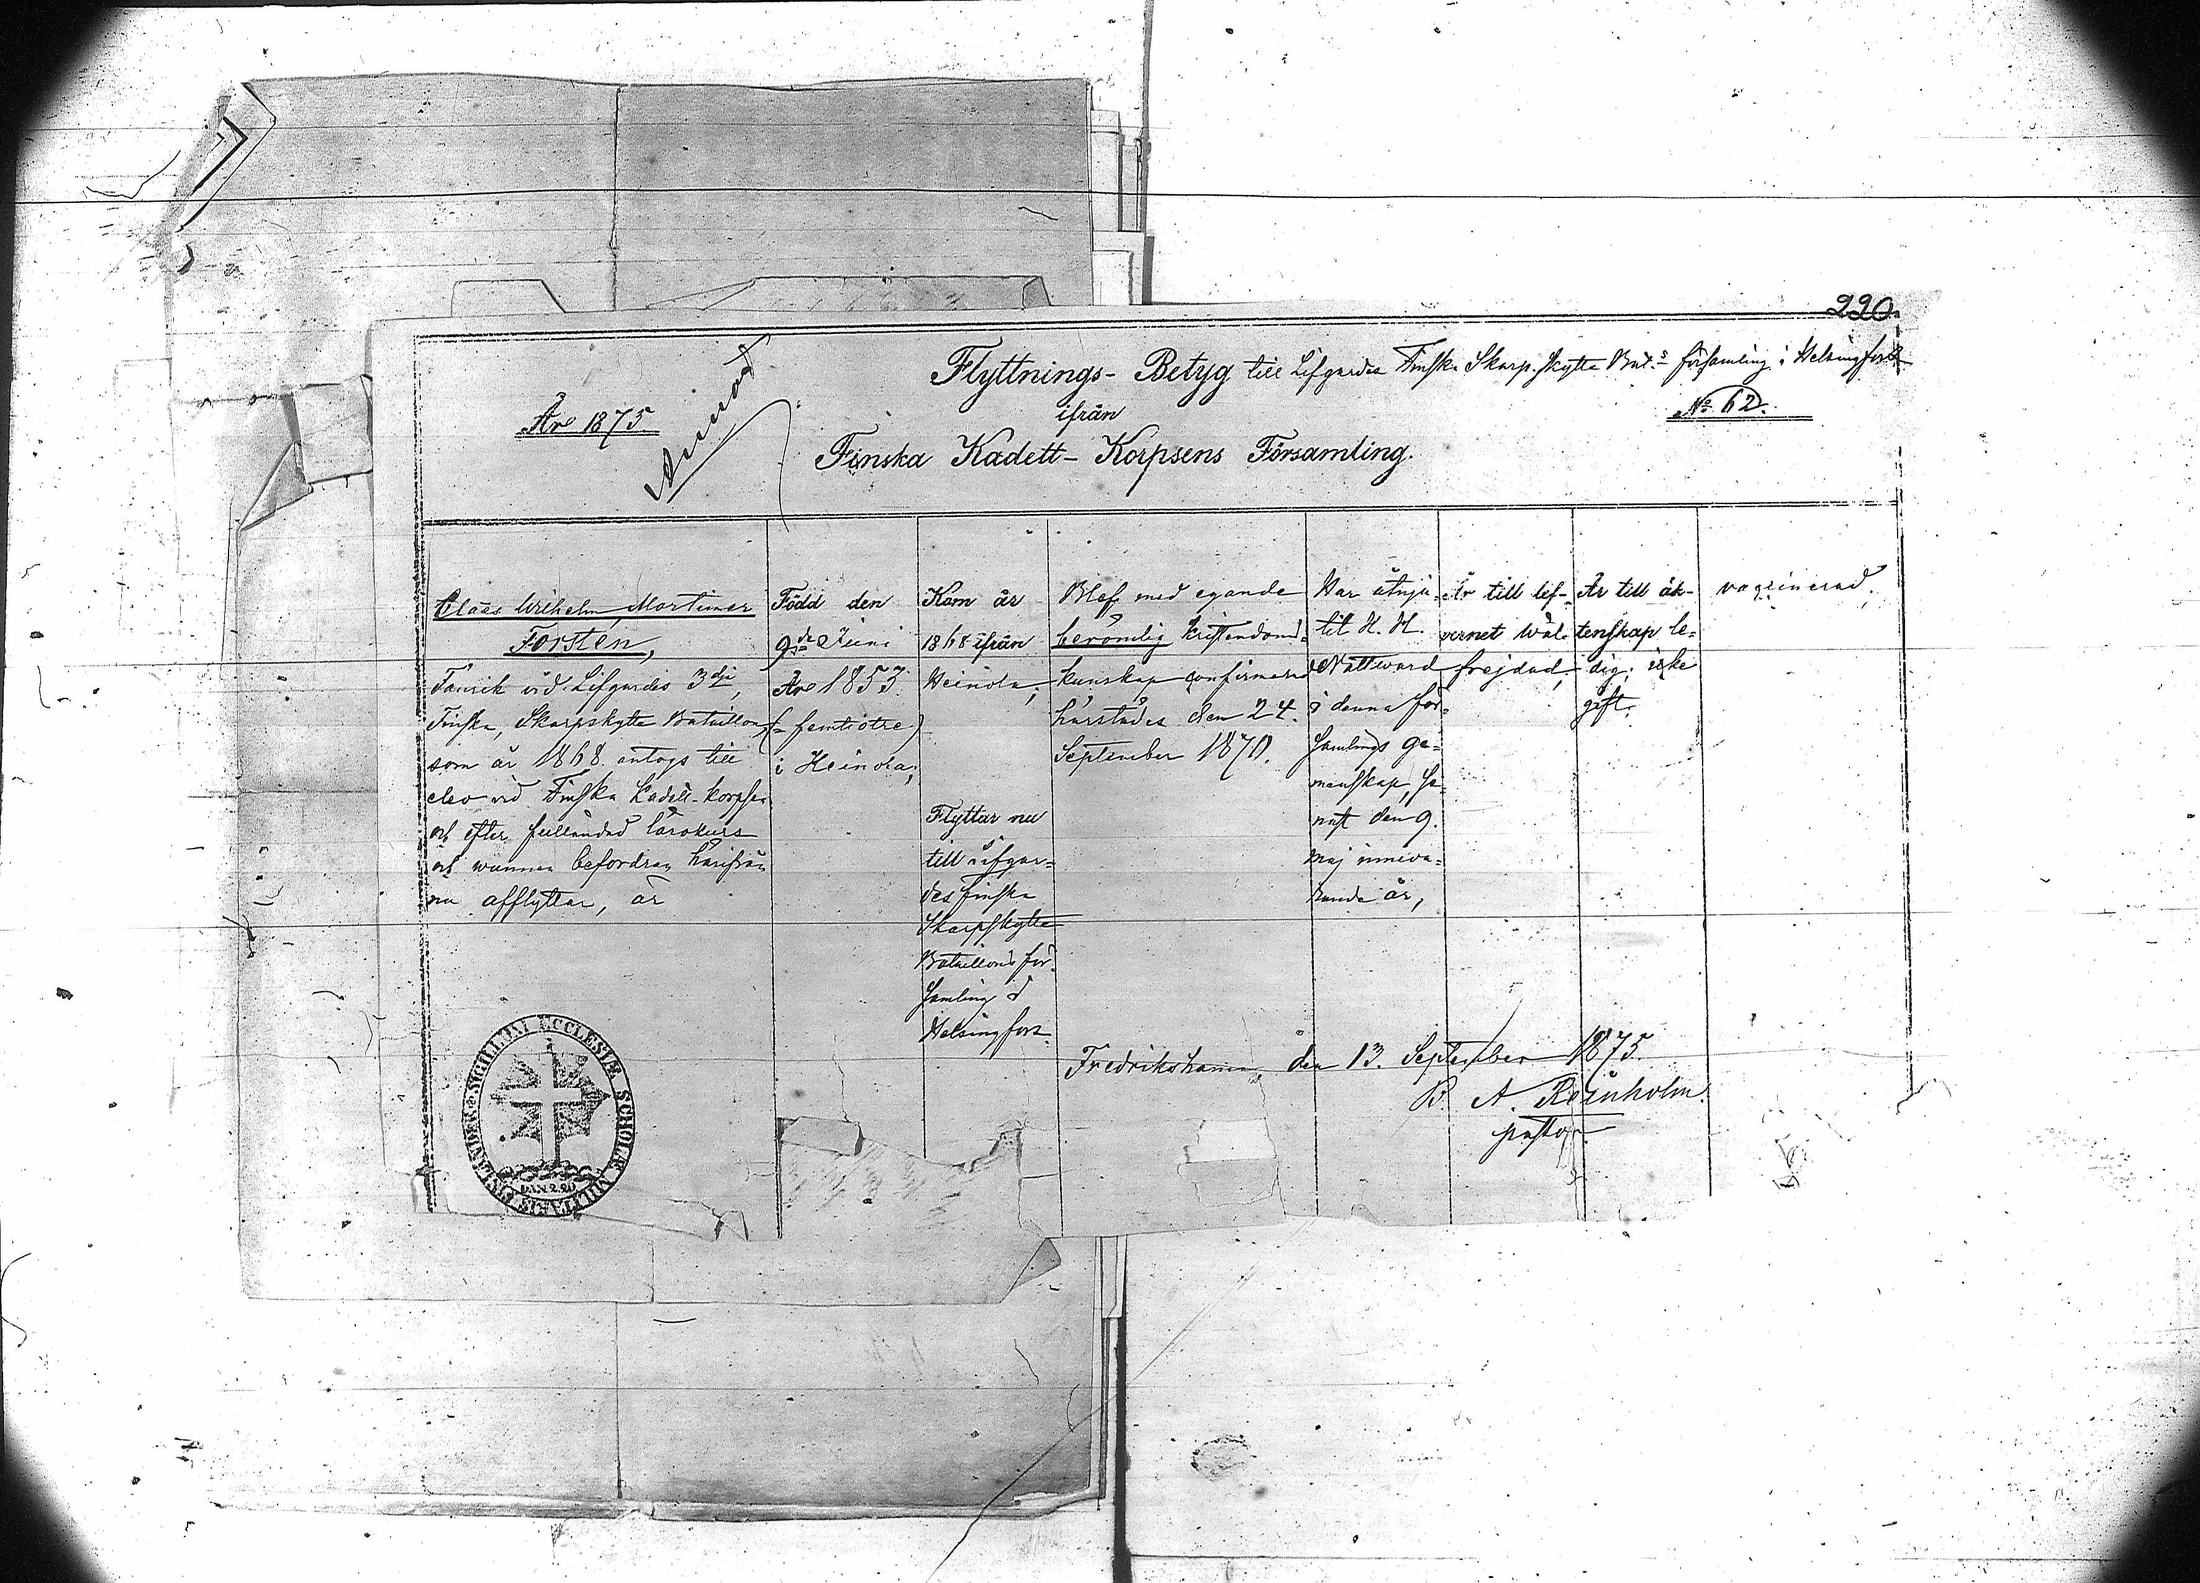 220.
Flyttnings-Betyg till Lifgardes Finska Skarp.skytte Bat.s församling i Helsingfors
År 1875.
ifrån
No 62.
Finska Kadett-Korpsens Församling.
Claës Wilhelm Mortimer
Forsten,
Fänrik vid Lifgardes 3dje
Finska Skarpskytte Bataillon,
som år 1868 antogs till
elev vid Finska Kadett-korpsen
och efter fulländad lärokurs
och wunnen befordran härifrån
nu afflyttar, är
Född den
9de Juni
År 1853.
(= femtiotre)
i Heinola;
Kom år
1868 ifrån
Heinola;
Flyttar nu
till Lifgar=
des finska
Skarpskytte
Bataillons för=
samling i
Helsingfors.
Blef med egande
berömlig kristendoms=
kunskap confirmerad
härstädes den 24.
September 1870.
Har åtnju=
tit H. H.
Nattward
i denna för=
samlings ge=
menskap, se=
nast den 9.
Maj inneva=
rande år,
Är till lef=
vernet wäl=
frejdad,
Är till äk=
tenskap le=
dig; icke
gift.
vaccinerad.
Fredrikshamn, den 13. September 1875.
B. A. Reinholm.
pastor.
SIGILLUM ECCLESIÆ SCHOLÆ MILITARIS FINLANDEN.
DAN 2.20